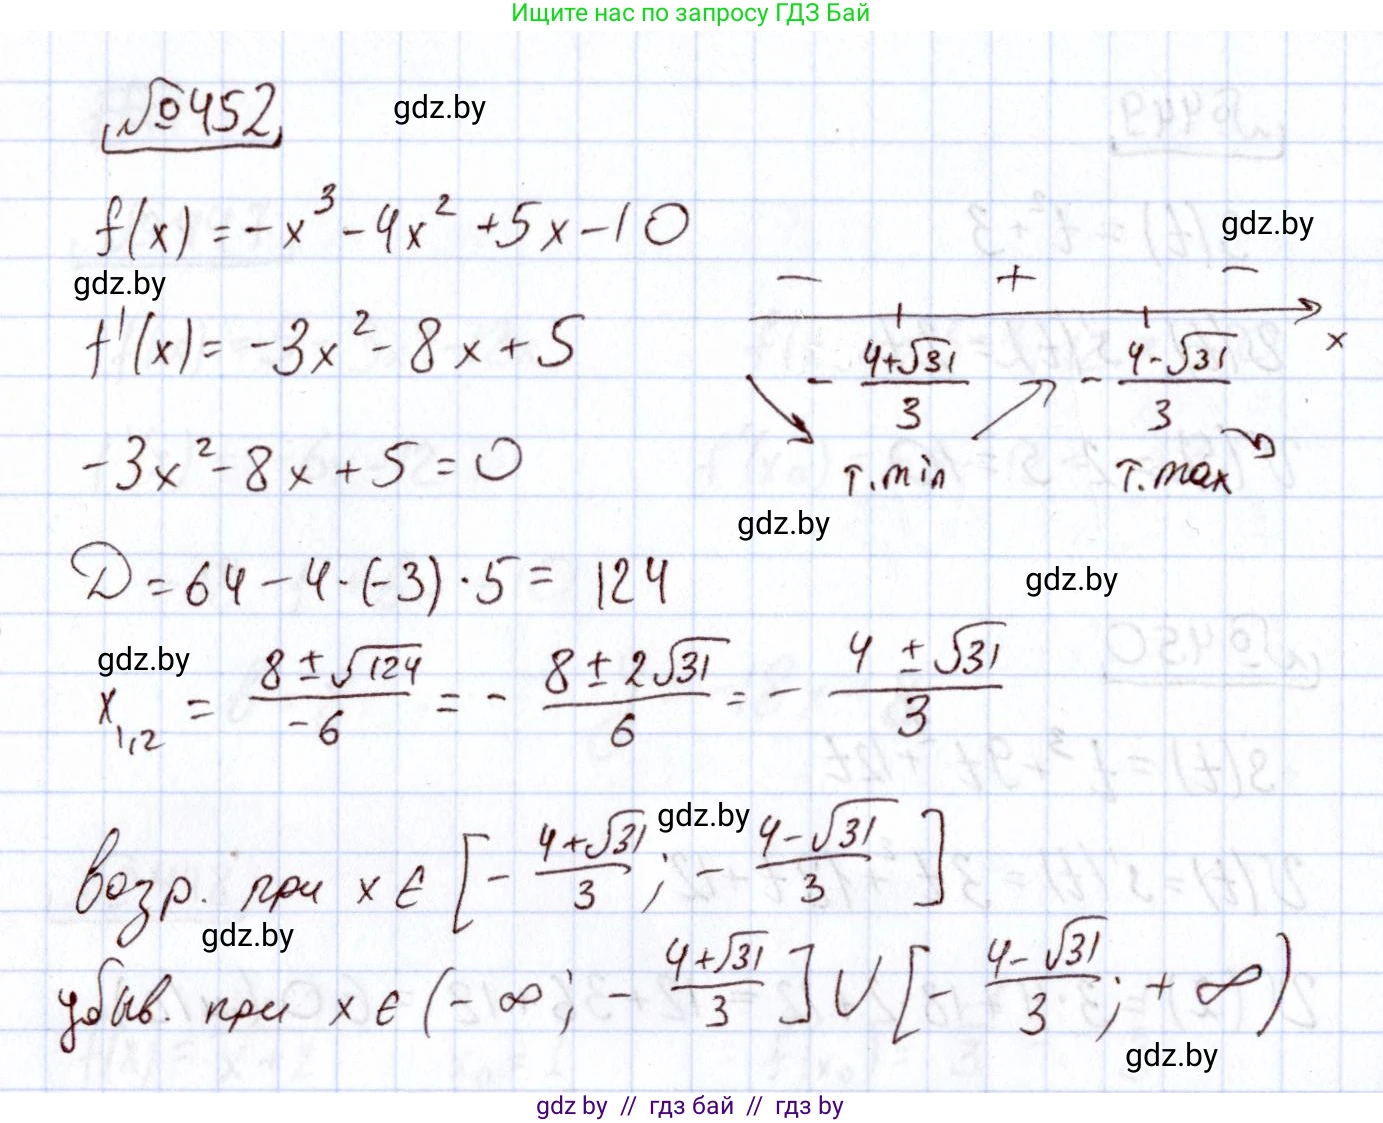 Ищите нас по запросу ГДЗ Бай
№452
gdz.by
f(x) = -x³ - 4x² + 5x - 10
gdz.by
gdz.by
f'(x) = -3x² - 8x + 5
- + -
x
- (4+√31)/3 - (4-√31)/3
т.min т.max
-3x² - 8x + 5 = 0
gdz.by
D = 64 - 4·(-3)·5 = 124
gdz.by
gdz.by
x₁,₂ = (8 ± √124)/(-6) = - (8 ± 2√31)/6 = - (4 ± √31)/3
gdz.by
возр. при x ∈ [- (4+√31)/3 ; - (4-√31)/3]
gdz.by
убыв. при x ∈ (-∞; - (4+√31)/3] ∪ [- (4-√31)/3 ; +∞)
gdz.by
gdz by // гдз бай // гдз by